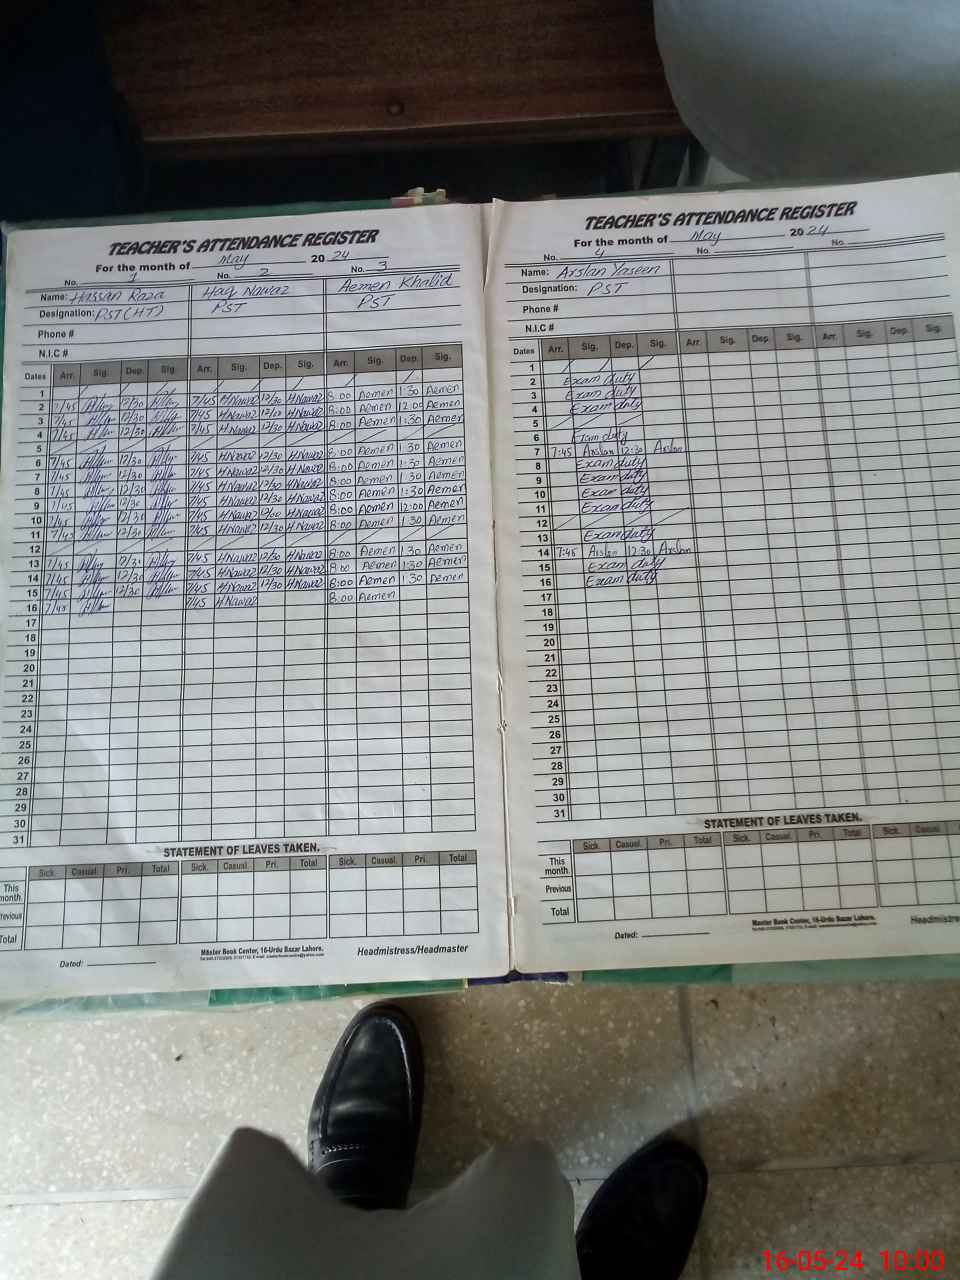 TEACHER'S ATTENDANCE REGISTER
For the month of May 2024
No. 1 No. 2 No. 3
Name: Hassan Raza Haq Nawaz Aemen Khalid
Designation: PST (HT) PST PST
Phone #
N.I.C #
Dates Arr. Sig. Dep. Sig. Arr. Sig. Dep. Sig. Arr. Sig. Dep. Sig.
1
2 7/45 12/30 7/45 H Nawaz 12/30 H Nawaz 8:00 Aemen 1:30 Aemen
3 7/45 12/30 7/45 H Nawaz H Nawaz 8:00 Aemen 12:00 Aemen
4 7/45 12/30 7/45 H Nawaz 12/30 H Nawaz 8:00 Aemen 1:30 Aemen
5
6 7/45 12/30 7/45 H Nawaz 12/30 H Nawaz 8:00 Aemen 1:30 Aemen
7 7/45 12/30 7/45 H Nawaz 12/30 H Nawaz 8:00 Aemen 1:30 Aemen
8 7/45 12/30 7/45 H Nawaz 12/30 H Nawaz 8:00 Aemen 1:30 Aemen
9 7/45 12/30 7/45 H Nawaz 12/30 H Nawaz 8:00 Aemen 1:30 Aemen
10 7/45 7/45 H Nawaz H Nawaz 8:00 Aemen 12:00 Aemen
11 7/45 12/30 7/45 H Nawaz 12/30 H Nawaz 8:00 Aemen 1:30 Aemen
12
13 7/45 7/45 H Nawaz 12/30 H Nawaz 8:00 Aemen 1:30 Aemen
14 7/45 12/30 7/45 H Nawaz 12/30 H Nawaz 8:00 Aemen 1:30 Aemen
15 7/45 12/30 7/45 H Nawaz 12/30 H Nawaz 8:00 Aemen 1:30 Aemen
16 7/45 7/45 H Nawaz 8:00 Aemen
17
18
19
20
21
22
23
24
25
26
27
28
29
30
31
STATEMENT OF LEAVES TAKEN.
Sick. Casual. Pri. Total Sick. Casual. Pri. Total Sick. Casual. Pri. Total
This month.
Previous
Total
Master Book Center, 16-Urdu Bazar Lahore.
Dated: Headmistress/Headmaster
TEACHER'S ATTENDANCE REGISTER
For the month of May 2024
No. 4 No. No.
Name: Arslan Yaseen
Designation: PST
Phone #
N.I.C #
Dates Arr. Sig. Dep. Sig. Arr. Sig. Dep. Sig. Arr. Sig. Dep. Sig.
1
2 Exam duty
3 Exam duty
4 Exam duty
5
6 Exam duty
7 7:45 Arslan 12:30 Arslan
8 Exam duty
9 Exam duty
10 Exam duty
11 Exam duty
12
13 Exam duty
14 7:45 Arslan 12:30 Arslan
15 Exam duty
16 Exam duty
17
18
19
20
21
22
23
24
25
26
27
28
29
30
31
STATEMENT OF LEAVES TAKEN.
Sick. Casual. Pri. Total Sick. Casual. Pri. Total Sick. Casual
This month.
Previous
Total
Master Book Center, 16-Urdu Bazar Lahore.
Dated: Headmistre
16-05-24 10:00